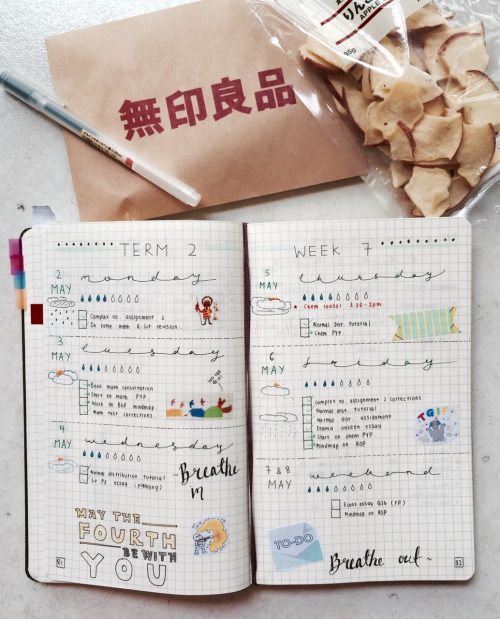 りんご
APPLE
無印良品
TERM 2
2
MAY
monday
Complex no. assignment 2
Do some math & GP revision
3
MAY
tuesday
Book math consultation
Start on math PYP
Work on BOP mindmap
math test corrections
4
MAY
wednesday
Normal distribution tutorial
GP P2 essay (planning)
Breathe
in
MAY THE
FOURTH
BE WITH
YOU
81
WEEK 7
5
MAY
thursday
* Chem consol 3.30-5pm
Normal dist. tutorial
Chem PYP
6
MAY
friday
Complex no. assignment 2 corrections
Normal dist. tutorial
Normal dist. assignment
Drama unseen essay
Start on chem PYP
Mindmap on BOP
TGIF
7 & 8
MAY
weekend
Econs essay
Mindmap on BOP
TO-DO
Breathe out~
82